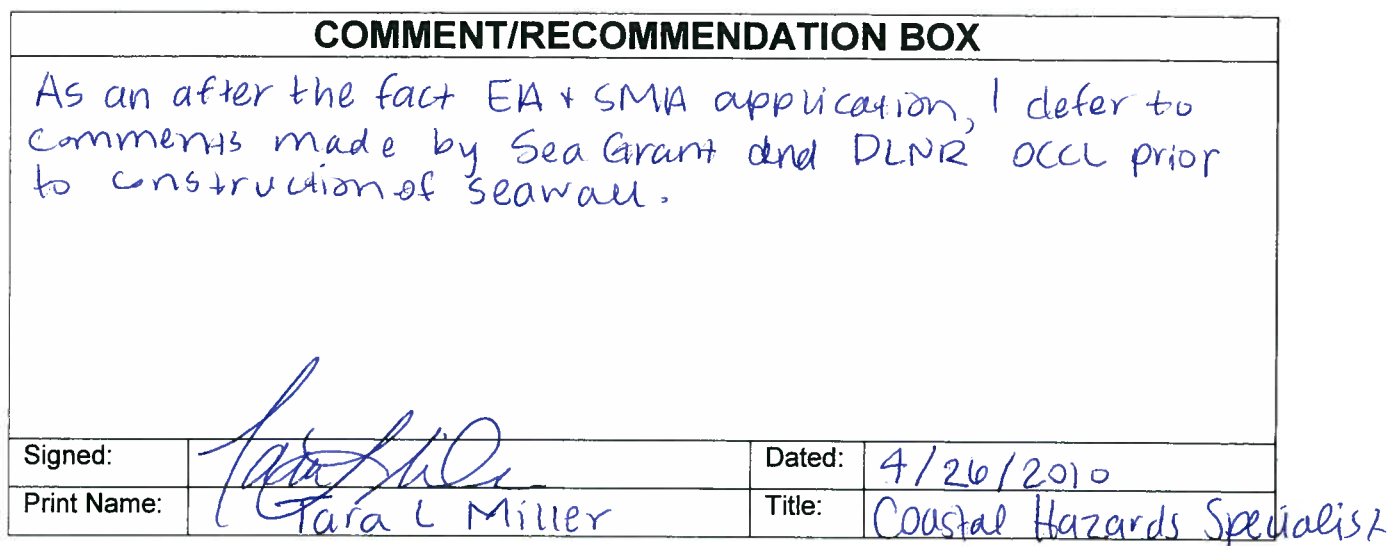 COMMENT/RECOMMENDATION BOX
As an after the fact EA + SMA application, I defer to
comments made by Sea Grant and DLNR OCCL prior
to construction of seawall.
Signed:
Dated: 4/26/2010
Print Name: Tara L Miller
Title: Coastal Hazards Specialist